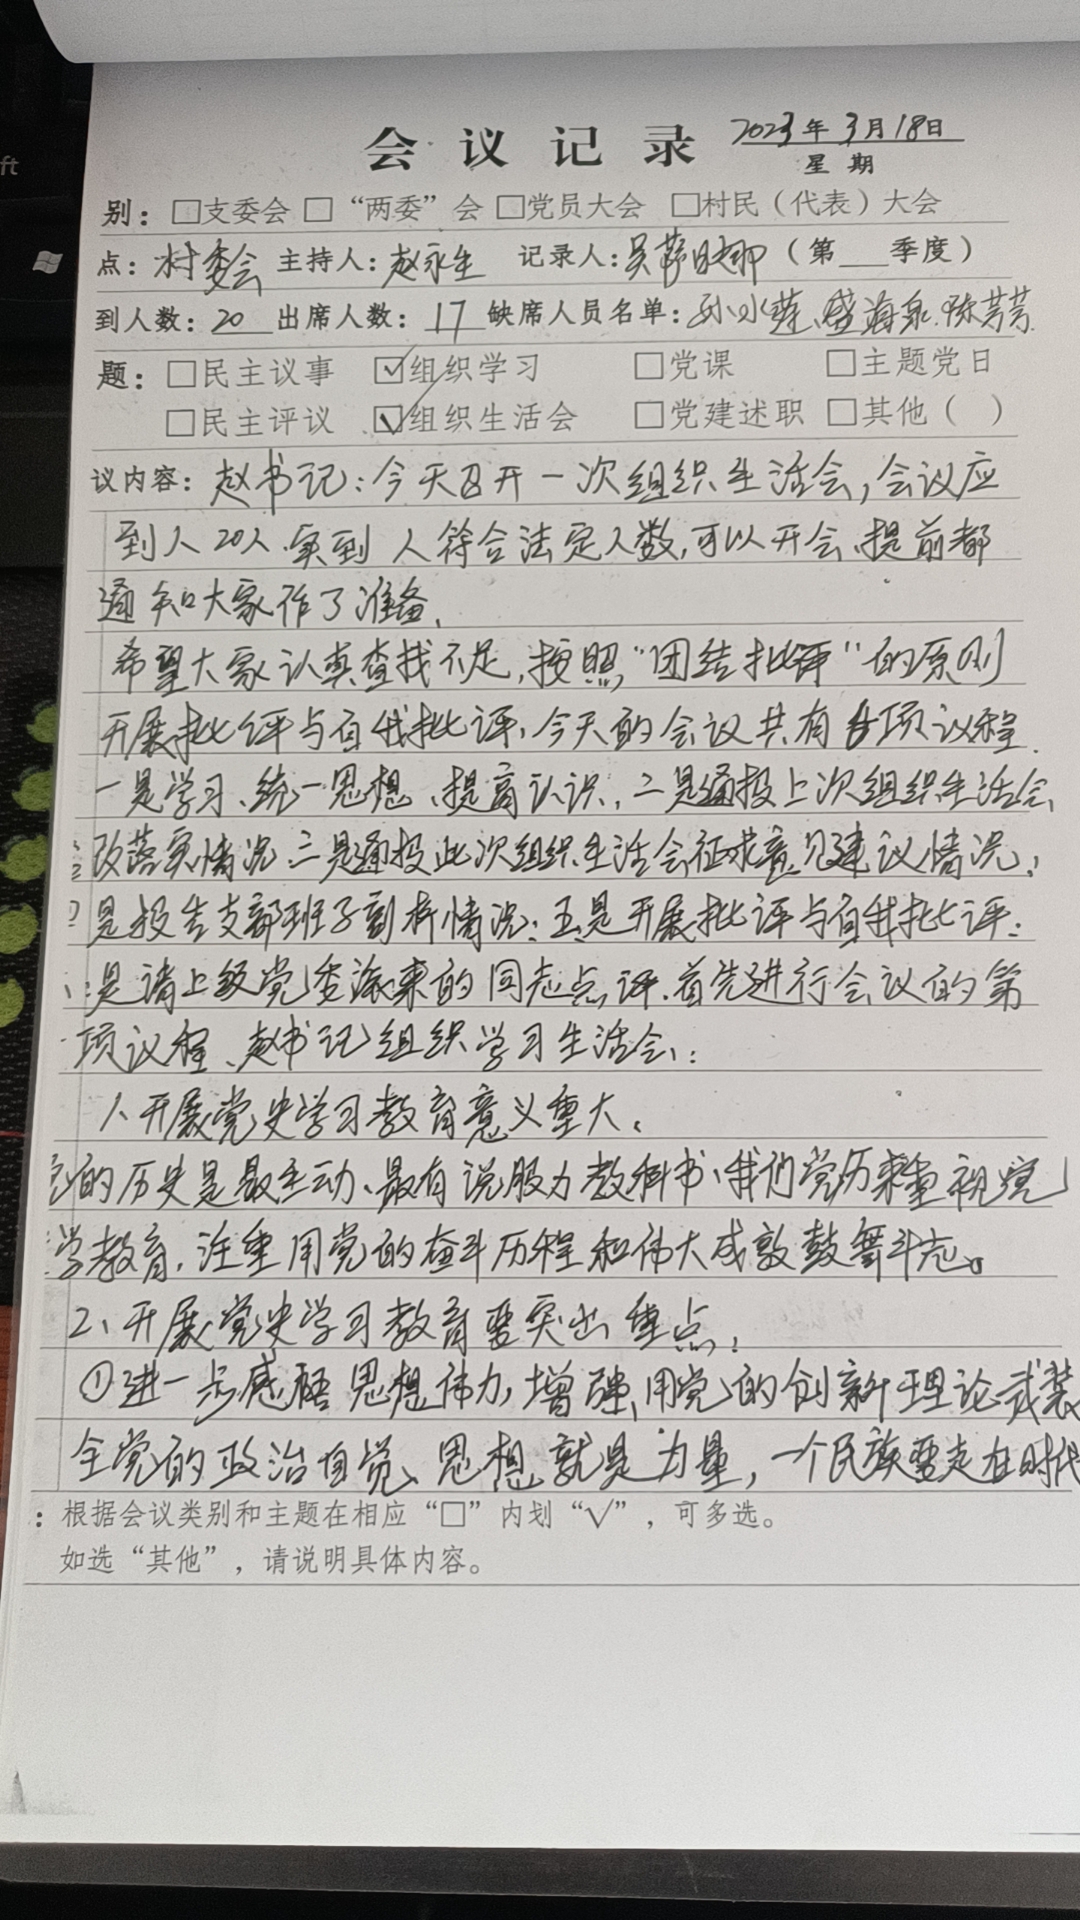 会议记录 2023年3月18日
星期
别：□支委会 □“两委”会 □党员大会 □村民（代表）大会
点：村委会 主持人：赵永生 记录人：吴萨日娜（第 季度）
到人数：20 出席人数：17 缺席人员名单：孙水莲、盛海泉、陈芳芳
题：□民主议事 ☑组织学习 □党课 □主题党日
□民主评议 ☑组织生活会 □党建述职 □其他（ ）
议内容：赵书记：今天召开一次组织生活会，会议应
到人20人、实到 人符合法定人数，可以开会、提前都
通知大家作了准备、
希望大家认真查找不足，按照“团结批评”的原则
开展批评与自我批评、今天的会议共有6项议程、
一是学习、统一思想、提高认识，二是通投上次组织生活会
改落实情况 三是通投此次组织生活会征求意见建议情况、
是投告支部班子剖析情况；五是开展批评与自我批评；
是请上级党委派来的同志点评、首先进行会议的第
项议程、赵书记组织学习生活会：
1、开展党史学习教育意义重大、
的历史是最生动、最有说服力教科书、我们党历来重视党
学教育，注重用党的奋斗历程和伟大成就鼓舞斗志。
2、开展党史学习教育要突出重点、
①进一步感悟思想伟力，增强用党的创新理论武装
全党的政治自觉、思想就是力量，一个民族要走在时代
：根据会议类别和主题在相应“□”内划“√”，可多选。
如选“其他”，请说明具体内容。
ft